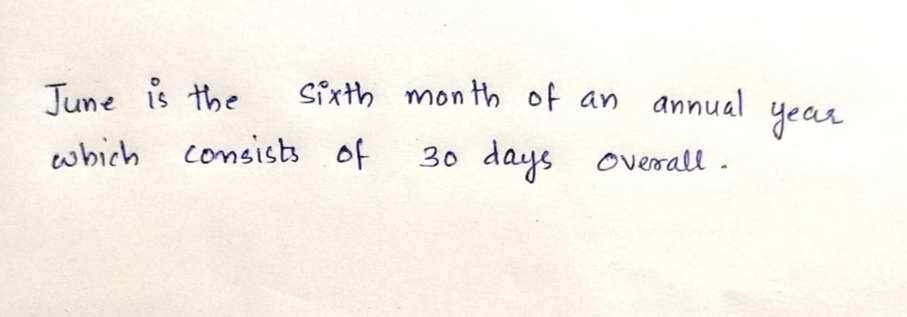 June is the sixth month of an annual year
which consists of 30 days overall.